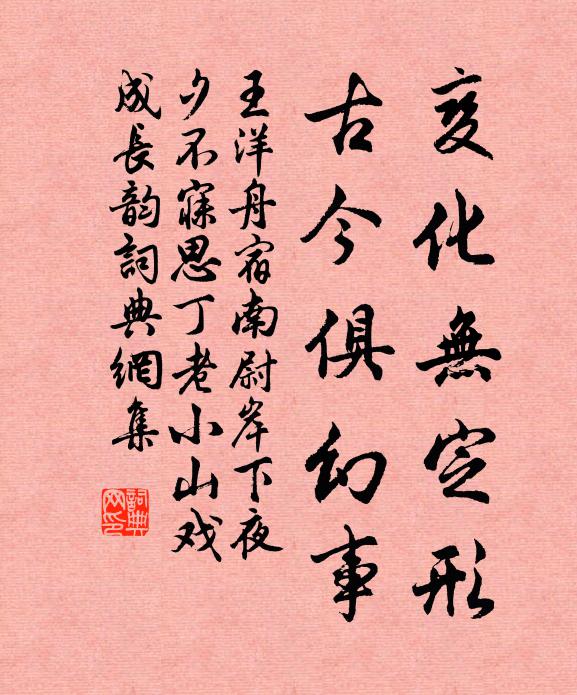 变化無定形
古今俱幻事
王洋舟宿南尉岸下夜
夕不寐思丁老小山戏
成長韵詞典網集
詞典
网印